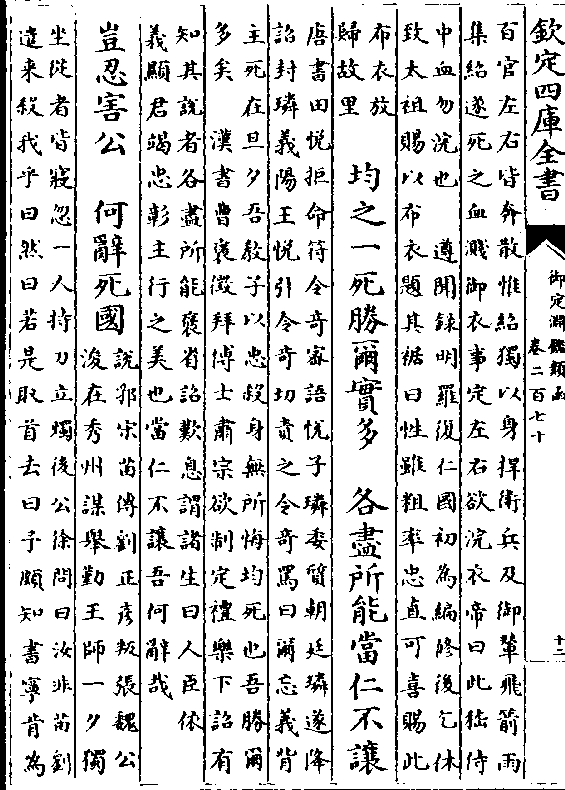 欽定四庫全書
御定淵鑑類函
卷二百七十
十三
百官左右皆奔散惟紹獨以身捍衛兵及御輦飛箭雨
集紹遂死之血濺御衣事定左右欲浣衣帝曰此嵇侍
中血勿浣也　遵聞錄明羅復仁國初為編修後乞休
致太祖賜以布衣題其裾曰性雖粗率忠直可喜賜此
布衣放
歸故里
均之一死勝爾實多　各盡所能當仁不讓
唐書田悅拒命符令奇密語悅子璘委質朝廷璘遂降
詔封璘義陽王悅引令奇切責之令奇罵曰爾忘義背
主死在旦夕吾教子以忠殺身無所悔均死也吾勝爾
多矣　漢書曹褒徵拜博士肅宗欲制定禮樂下詔有
知其說者各盡所能褒省詔歎息謂諸生曰人臣依
義顯君竭忠彰主行之美也當仁不讓吾何辭哉
豈忍害公　何辭死國
說郛宋苗傅劉正彥叛張魏公
浚在秀州謀舉勤王師一夕獨
坐從者皆寢忽一人持刀立燭後公徐問曰汝非苗劉
遣來殺我乎曰然曰若是取首去曰予頗知書寧肯為